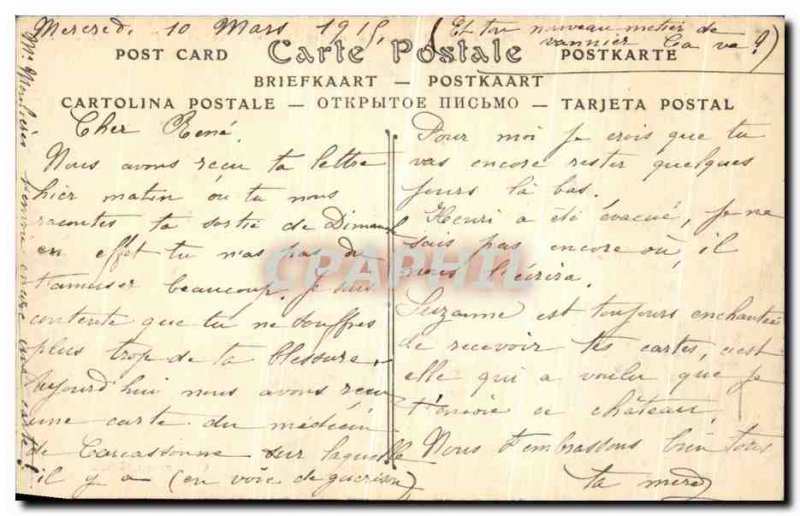 Mercredi 10 Mars 1915
(Et ton nouveau metier de
vannier Ca va ?)
POST CARD Carte Postale POSTKARTE
BRIEFKAART — POSTKAART
CARTOLINA POSTALE — ОТКРЫТОЕ ПИСЬМО — TARJETA POSTAL
Cher René
Nous avons reçu ta lettre
hier matin où tu nous
racontes ta sortie de Dimanche
en effet tu n'as pas du
t'amuser beaucoup. Je suis
contente que tu ne souffres
plus trop de ta blessure.
Aujourd'hui nous avons reçu
une carte du médecin
de Carcassonne sur laquelle
il y a (en voie de guerison)
Pour moi je crois que tu
vas encore rester quelques
jours là bas.
Henri a été évacué, je ne
sais pas encore où, il
nous l'écrira.
Suzanne est toujours enchantée
de recevoir tes cartes, c'est
elle qui a voulu que je
t'envoie ce château,
Nous t'embrassons bien tous
ta mère
encore une carte
CPAPHIL